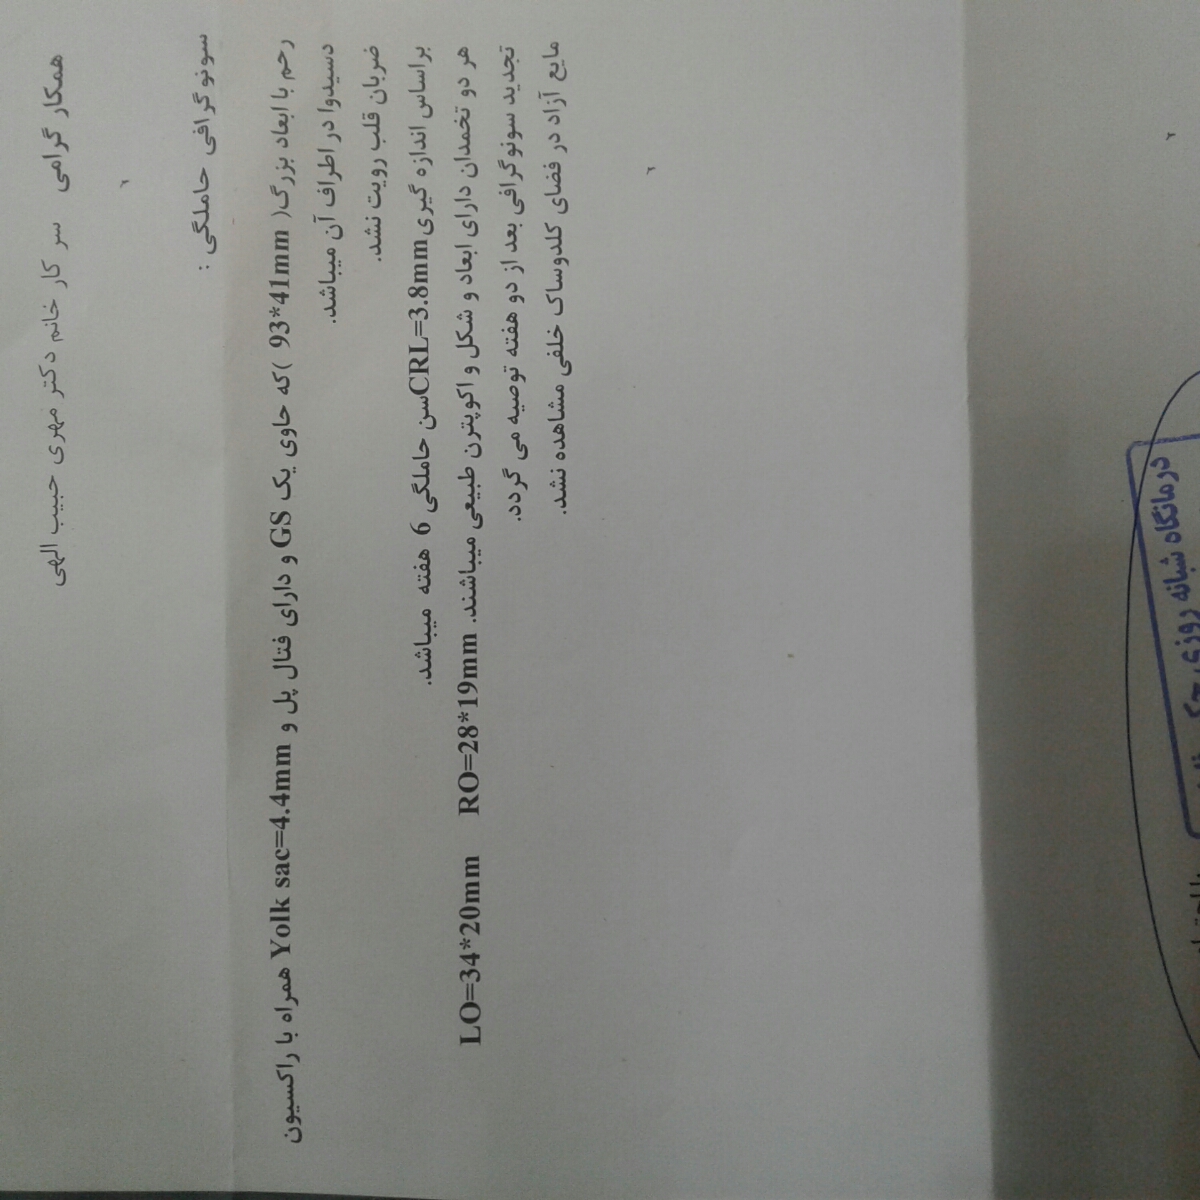 همکار گرامی سر کار خانم دکتر مهری حبیب الهی
سونوگرافی حاملگی :
رحم با ابعاد بزرگ( 93*41mm )که حاوی یک GS و دارای فتال پل و Yolk sac=4.4mm همراه با راکسیون
دسیدوا در اطراف آن میباشد.
ضربان قلب رویت نشد.
براساس اندازه گیریCRL=3.8mmسن حاملگی 6 هفته میباشد.
هر دو تخمدان دارای ابعاد و شکل و اکوپترن طبیعی میباشند. RO=28*19mm LO=34*20mm
تجدید سونوگرافی بعد از دو هفته توصیه می گردد.
مایع آزاد در فضای کلدوساک خلفی مشاهده نشد.
درمانگاه شبانه روزی